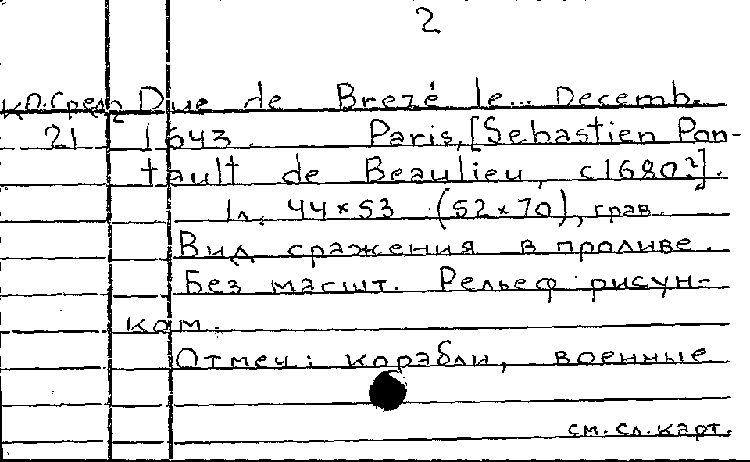 2
кп.Сред Duc de Brezé le... Decemb.
21 2 1643. Paris, [Sebastien Pon-
tault de Beaulieu, c1680?].
1л. 44×53 (52×70), грав.
Вид сражения в проливе.
Без масшт. Рельеф рисун-
ком.
Отмеч: корабли, военные
см. сл. карт.